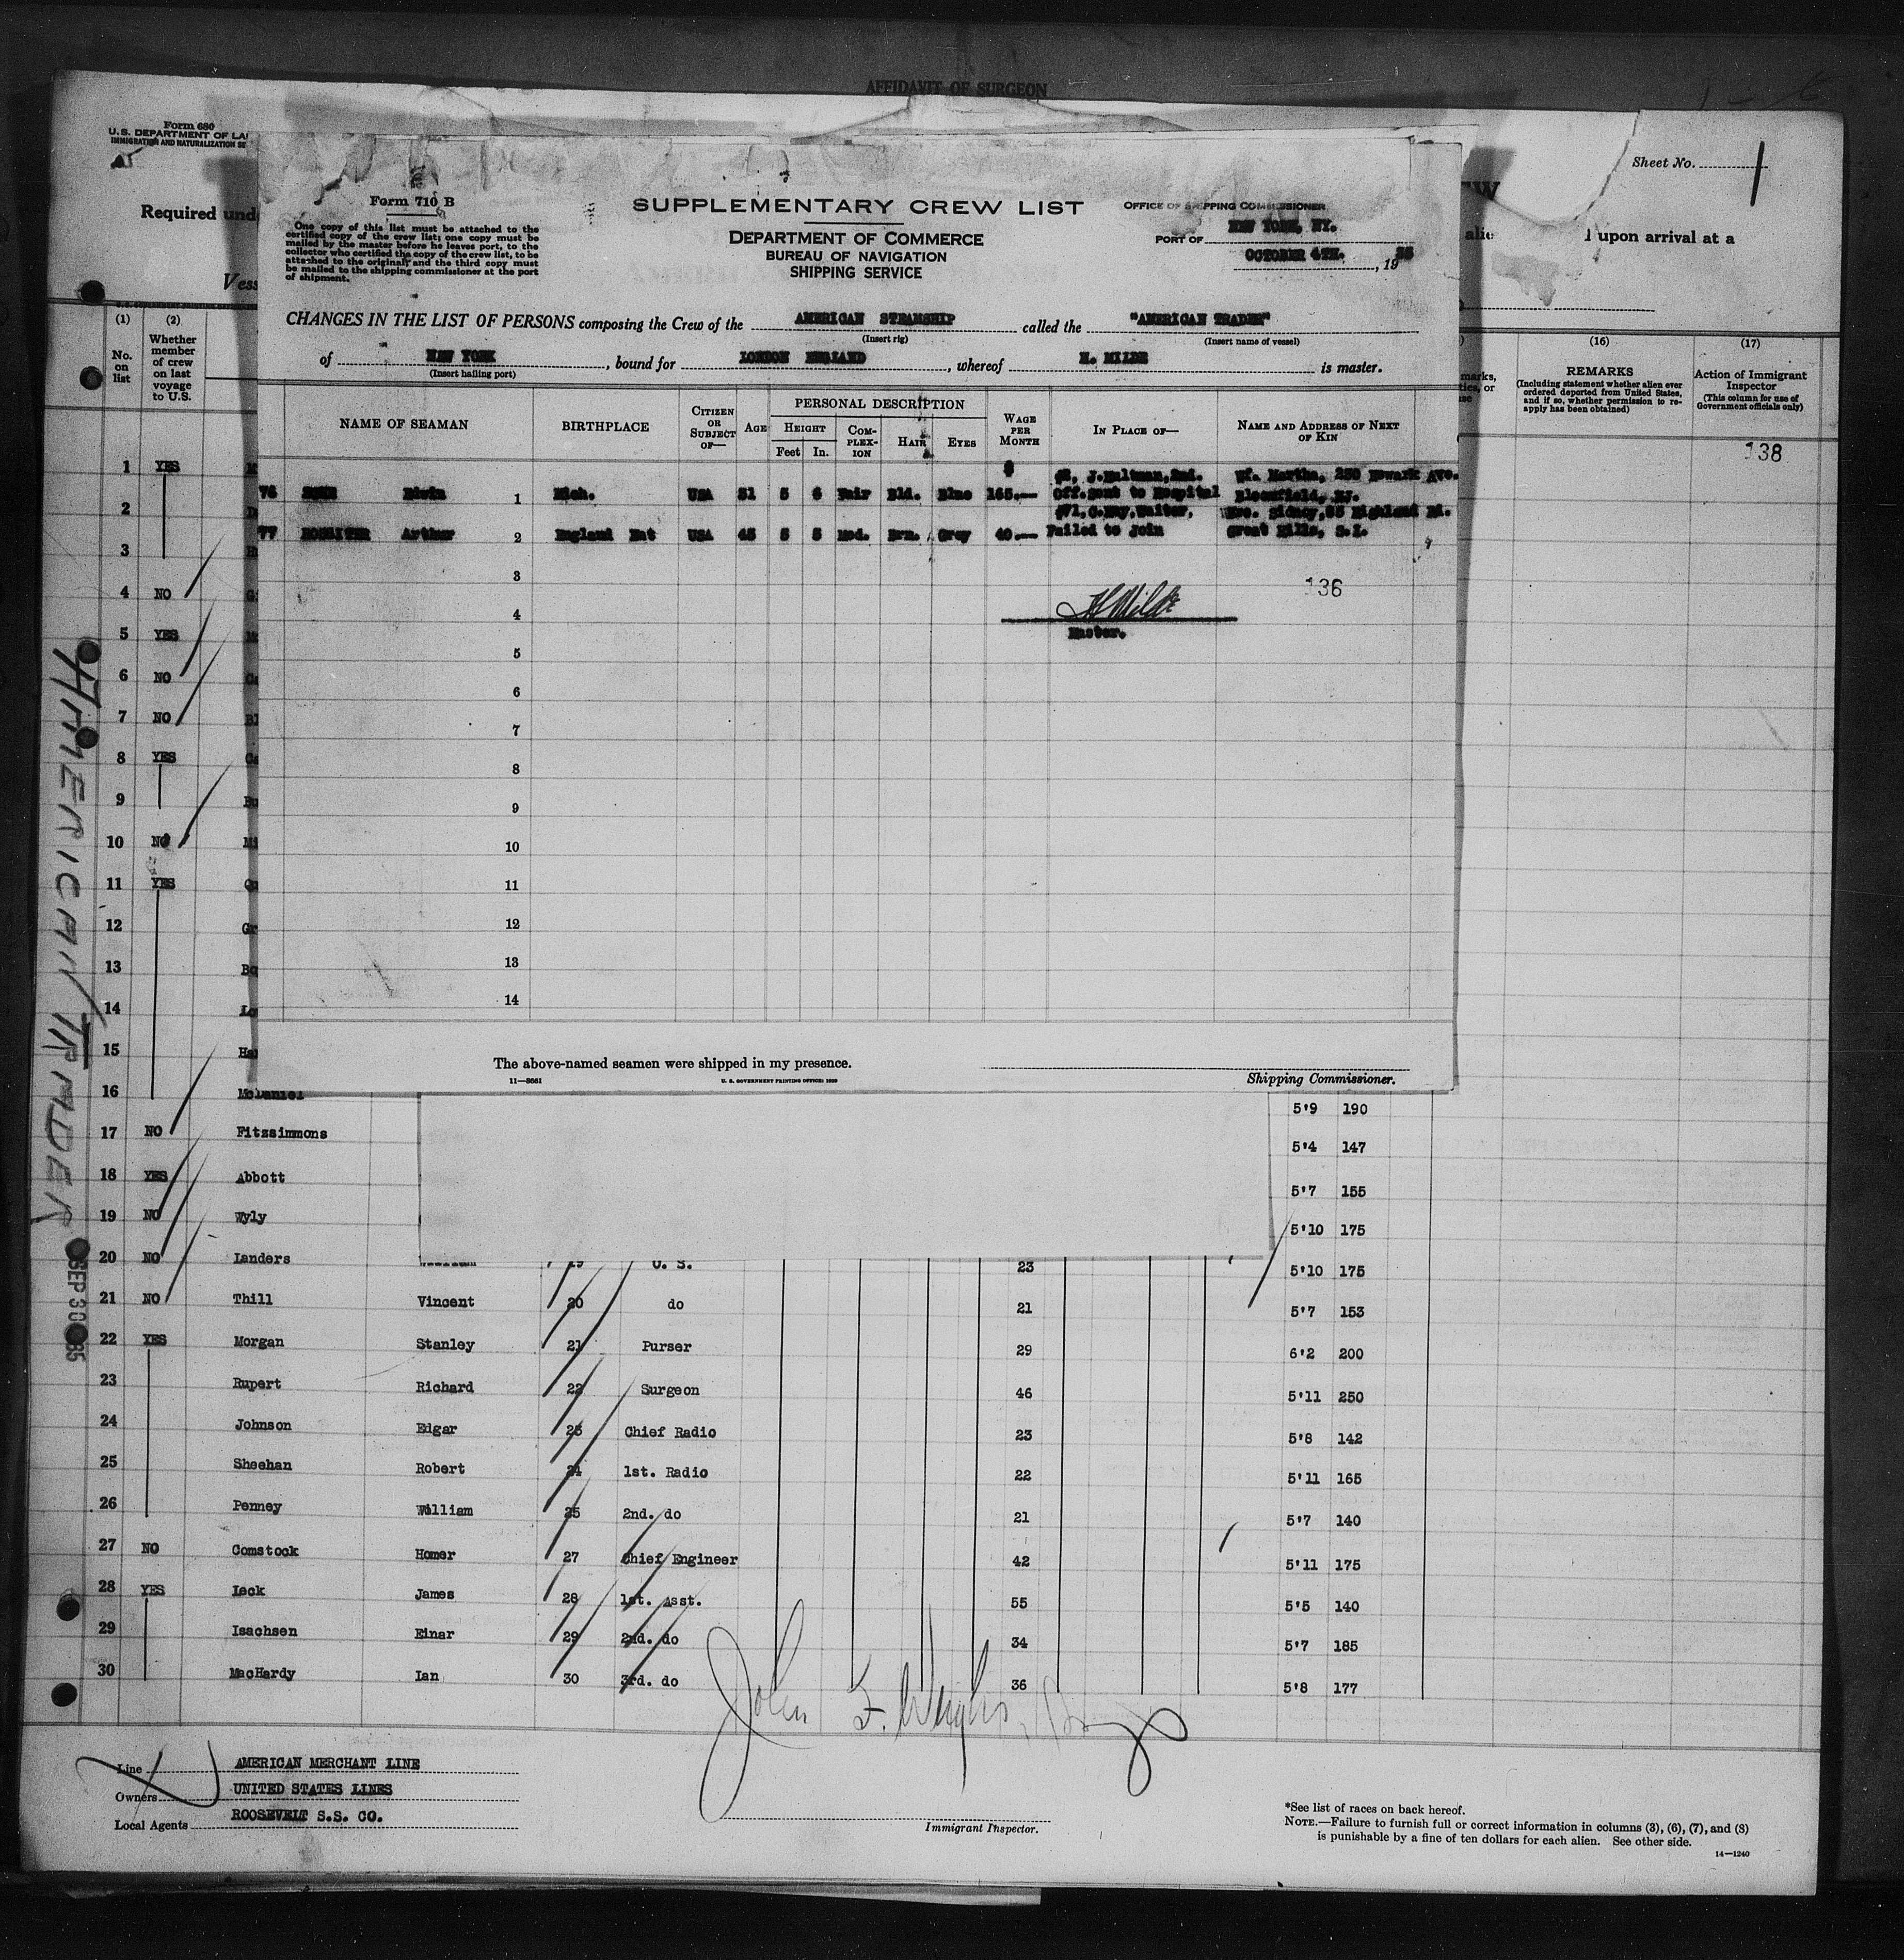 AFFIDAVIT OF SURGEON
Form 680
U.S. DEPARTMENT OF LA
IMMIGRATION AND NATURALIZATION SE
Sheet No. 1
Required und
alie
upon arrival at a
Vess
Form 710 B
One copy of this list must be attached to the
certified copy of the crew list; one copy must be
mailed by the master before he leaves port, to the
collector who certified the copy of the crew list, to be
attached to the original; and the third copy must
be mailed to the shipping commissioner at the port
of shipment.
SUPPLEMENTARY CREW LIST
DEPARTMENT OF COMMERCE
BUREAU OF NAVIGATION
SHIPPING SERVICE
OFFICE OF SHIPPING COMMISSIONER
PORT OF NEW YORK, NY.
OCTOBER 4TH. , 19 35
CHANGES IN THE LIST OF PERSONS composing the Crew of the AMERICAN STEAMSHIP called the "AMERICAN TRADER"
(Insert rig) (Insert name of vessel)
of NEW YORK , bound for LONDON ENGLAND , whereof H. MILDE is master.
(Insert hailing port)
NAME OF SEAMAN BIRTHPLACE CITIZEN OR SUBJECT OF— AGE PERSONAL DESCRIPTION HEIGHT Feet In. COMPLEXION HAIR EYES WAGE PER MONTH IN PLACE OF— NAME AND ADDRESS OF NEXT OF KIN
$ #2, J.Haltman,2nd. Wf. Martha, 250 Newark Ave.
76 Edwin 1 Mich. USA 31 5 6 Fair Bld. Blue 165.— Off.sent to Hospital Bloomfield, NJ.
#71, Waiter,
77 ROSSITER Arthur 2 England Nat USA 45 5 5 Med. Brn. Grey 40.— Failed to Join Great Kills, S.I.
3
136
4
H Milde
Master.
5
6
7
8
9
10
11
12
13
14
The above-named seamen were shipped in my presence.
11—8661 U. S. GOVERNMENT PRINTING OFFICE: 1929
Shipping Commissioner.
(1) (2) (16) (17)
No. on list
Whether member of crew on last voyage to U.S.
REMARKS
(Including statement whether alien ever
ordered deported from United States,
and if so, whether permission to re-
apply has been obtained)
Action of Immigrant
Inspector
(This column for use of
Government officials only)
138
1 YES
2
3
4 NO
5 YES
6 NO
7 NO
8 YES
9
10 NO
11 YES
12
13
14
15
16 McDaniel 5'9 190
17 NO Fitzsimmons 5'4 147
18 YES Abbott 5'7 155
19 NO Wyly 5'10 175
20 NO Landers 19 U. S. 23 5'10 175
21 NO Thill Vincent 20 do 21 5'7 153
22 YES Morgan Stanley 21 Purser 29 6'2 200
23 Rupert Richard 22 Surgeon 46 5'11 250
24 Johnson Edgar 23 Chief Radio 23 5'8 142
25 Sheehan Robert 24 1st. Radio 22 5'11 165
26 Penney William 25 2nd. do 21 5'7 140
27 NO Comstock Homer 27 Chief Engineer 42 5'11 175
28 YES Leck James 28 1st. Asst. 55 5'5 140
29 Isachsen Einar 29 2nd. do 34 5'7 185
30 MacHardy Ian 30 3rd. do 36 5'8 177
AMERICAN TRADER
SEP 30 1935
John F.
Line AMERICAN MERCHANT LINE
Owners UNITED STATES LINES
Local Agents ROOSEVELT S.S. CO.
Immigrant Inspector.
*See list of races on back hereof.
NOTE.—Failure to furnish full or correct information in columns (3), (6), (7), and (8)
is punishable by a fine of ten dollars for each alien. See other side.
14—1240